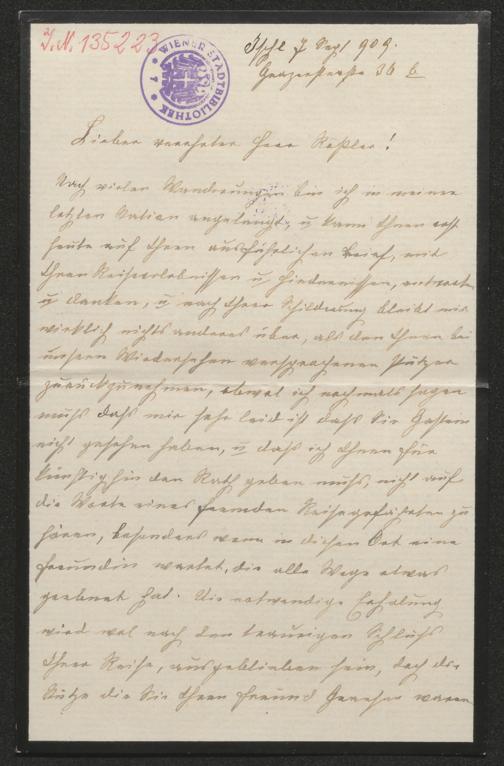 J.N. 135223
WIENER STADTBIBLIOTHEK
Ischl 7 Sept 909.
Grazerstraße 36 b
Lieber verehrter Herr Roßler!
Nach vielen Wanderungen bin ich in meiner
letzten Station angelangt, u kann Ihnen erst
heute auf Ihren ausführlichen Brief, mit
Ihren Reiseerlebnissen u Hindernissen, antworten
u danken, u nach Ihrer Schilderung bleibt mir
wirklich nichts anderes über, als den Ihnen bei
unserm Wiedersehen versprochenen
zurückzunehmen, obwol ich nochmals sagen
muß daß mir sehr leid ist daß Sie Gastein
nicht gesehen haben, u daß ich Ihnen für
künftighin den Rath geben muß, nicht auf
die Worte eines fremden Reisegefährten zu
hören, besonders wenn in diesen Ort eine
Freundin wartet, die alle Wege etwas
geebnet hat. Die notwendige Erholung
wird wol nach den traurigen Schluß
Ihrer Reise, ausgeblieben sein, doch die
Stütze die Sie Ihren Freund waren